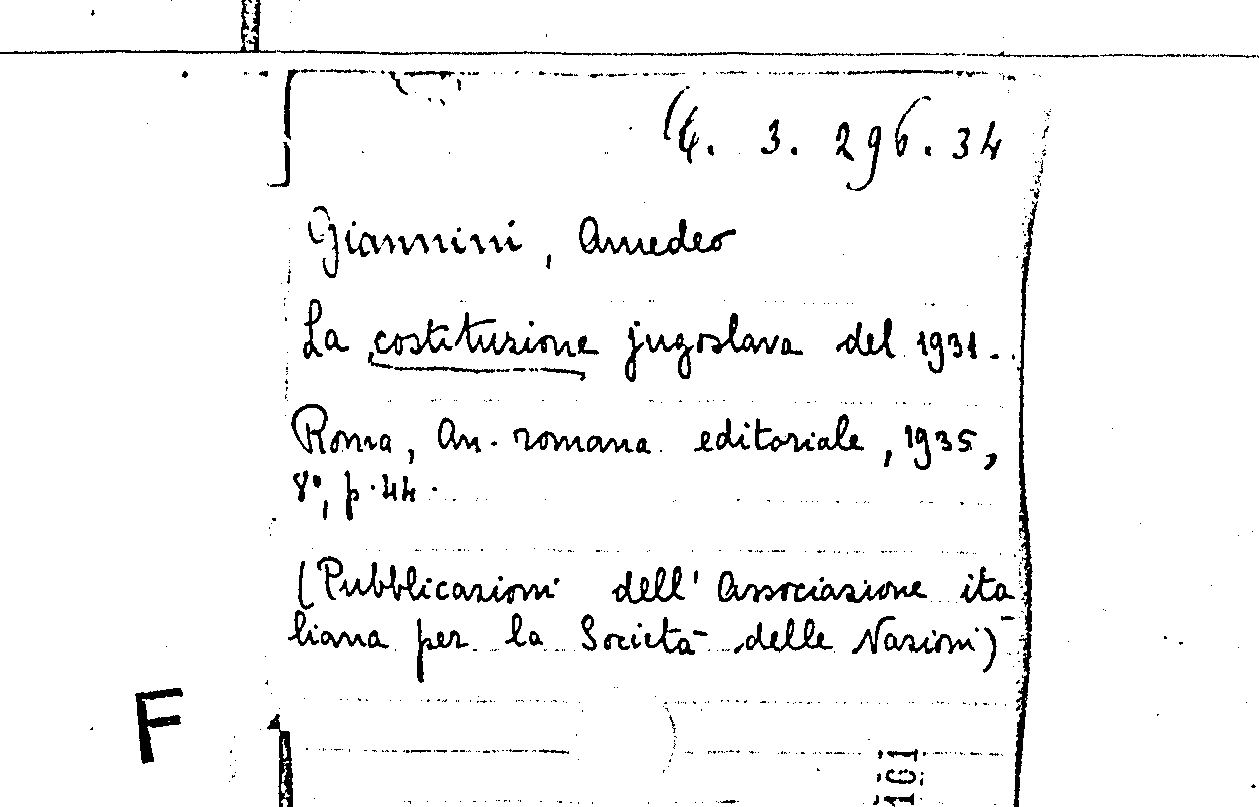 4. 3. 296. 34
Giannini, Amedeo
La costituzione jugoslava del 1931.
Roma, An. romana editoriale, 1935,
8°, p. 44.
(Pubblicazioni dell'Associazione ita
liana per la Società delle Nazioni)
F
101